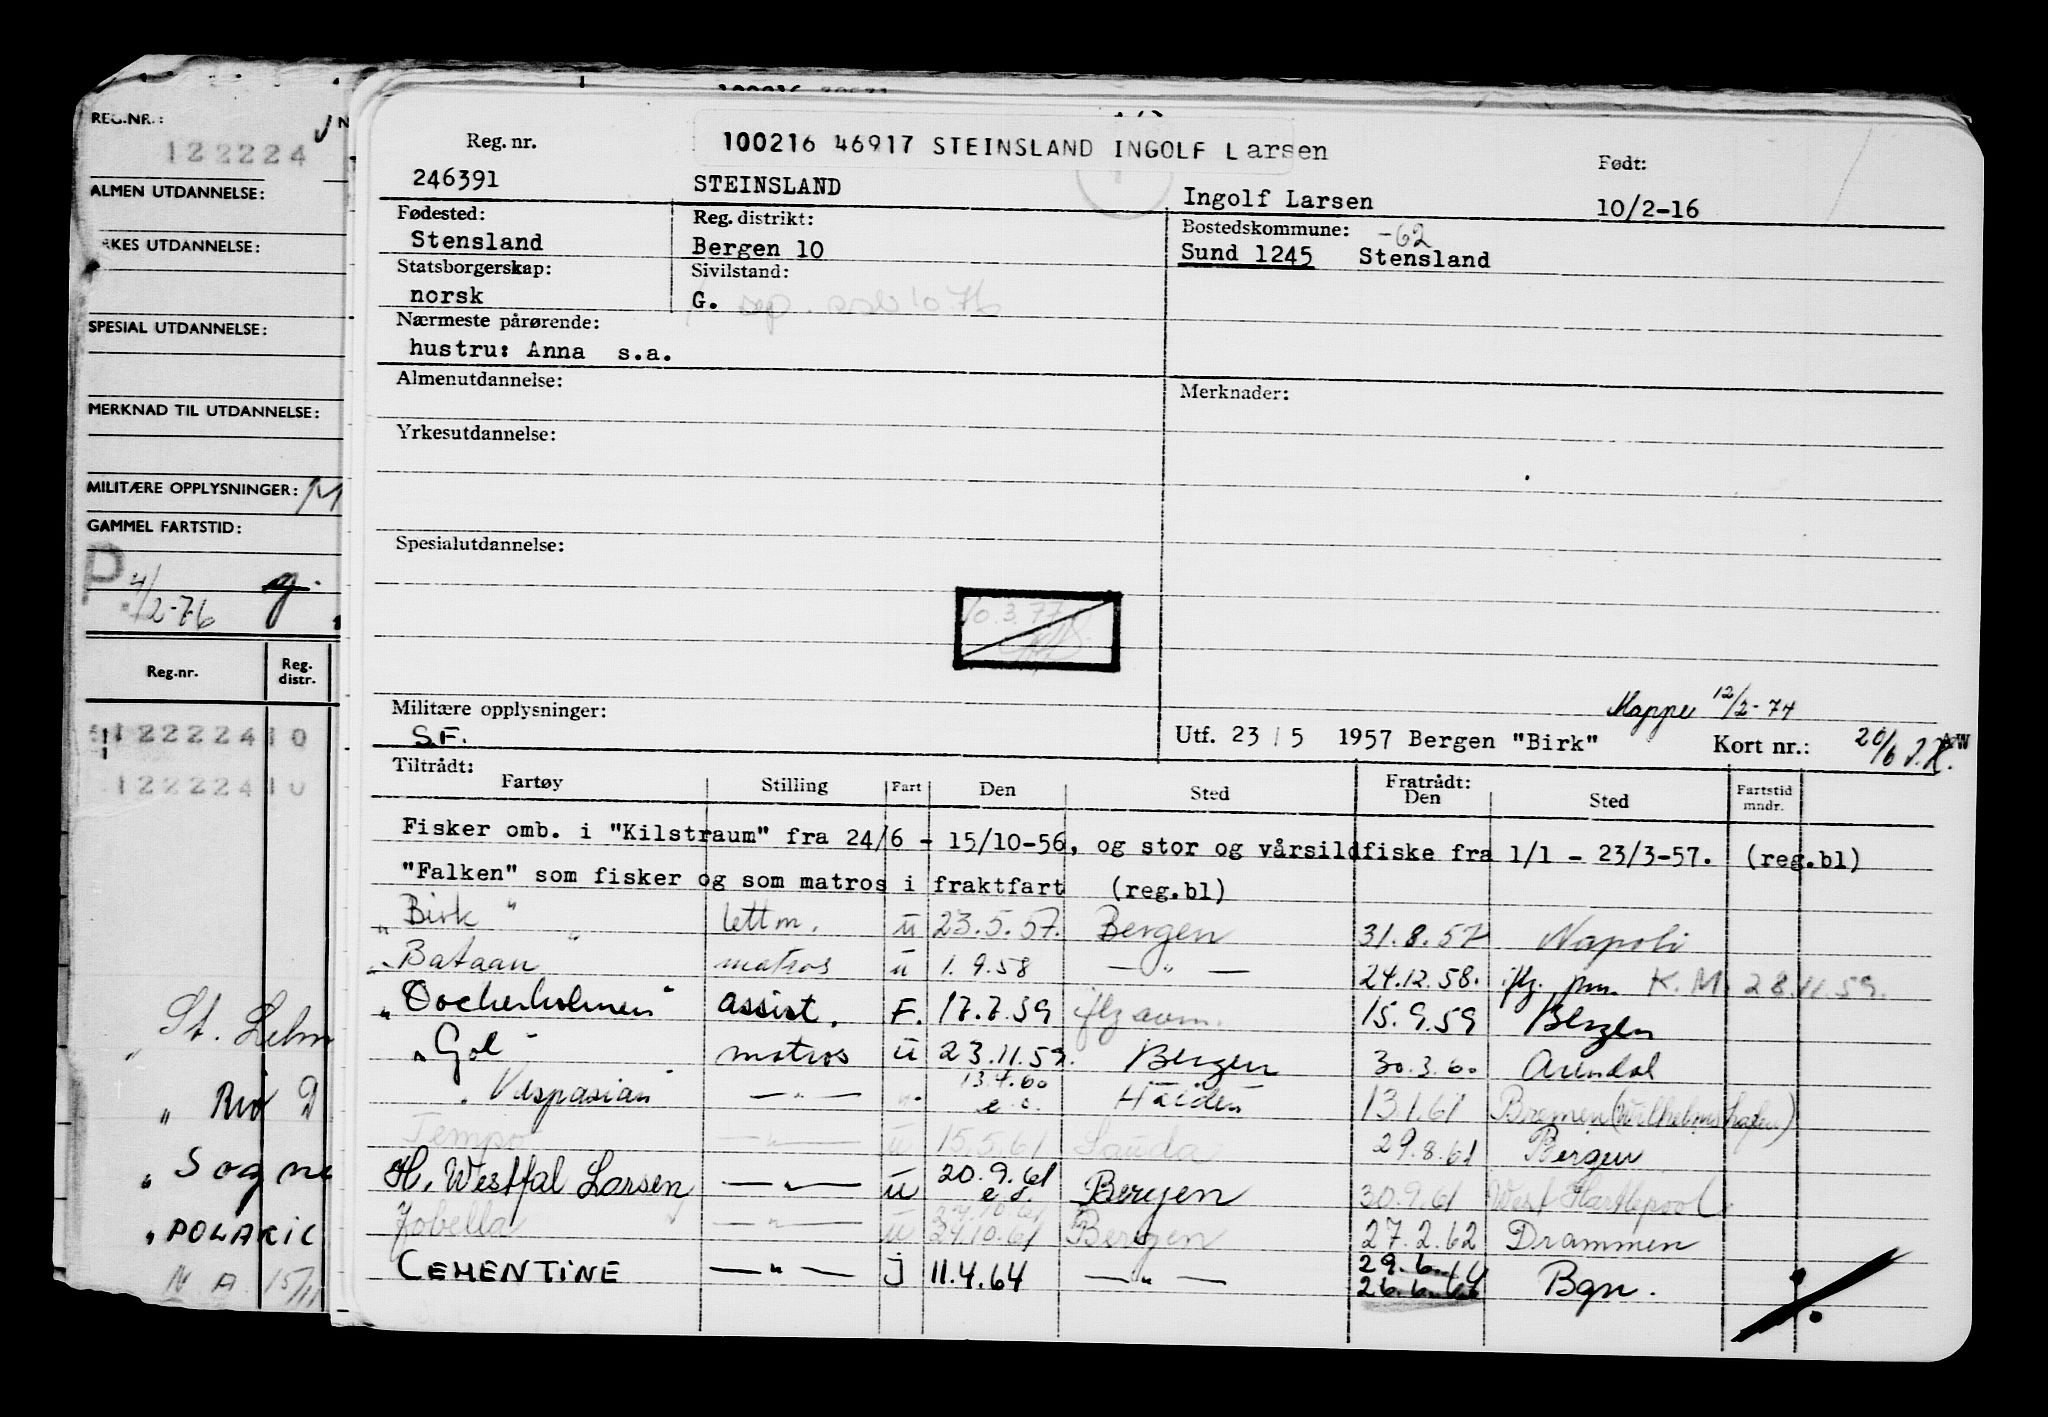 REG.NR.:
122224
ALMEN UTDANNELSE:
RKES UTDANNELSE:
SPESIAL UTDANNELSE:
MERKNAD TIL UTDANNELSE:
MILITÆRE OPPLYSNINGER: M
GAMMEL FARTSTID:
P 4/2-76
Reg.nr. Reg. distr.
12222410
12222410
" St.
" Rio D
" Sogne
" POLARIC
N A 15/11
Reg. nr. 100216 46917 STEINSLAND INGOLF Larsen Født:
246391 STEINSLAND Ingolf Larsen 10/2-16
Fødested: Reg. distrikt: Bostedskommune: -62
Stensland Bergen 10 Sund 1245 Stensland
Statsborgerskap: Sivilstand:
norsk G. sep.
Nærmeste pårørende:
hustru: Anna s.a.
Almenutdannelse: Merknader:
Yrkesutdannelse:
Spesialutdannelse:
10.3.77
Mappe 12/2-74
Militære opplysninger:
S.F. Utf. 23/5 1957 Bergen "Birk" Kort nr.: 20/6
Tiltrådt: Fratrådt:
Fartøy Stilling Fart Den Sted Den Sted Fartstid mndr.
Fisker omb. i "Kilstraum" fra 24/6 - 15/10-56, og stor og vårsildfiske fra 1/1 - 23/3-57. (reg.bl)
"Falken" som fisker og som matros i fraktfart (reg.bl)
Birk " lettm. u 23.5.57. Bergen 31.8.57 Napoli
" Bataan " matros u 1.9.58 — " — 24.12.58. K.M. 28.11.59.
" " assist. F. 17.7.59 15.9.59 Bergen
" Gol " matros u 23.11.59. Bergen 30.3.60 Arendal
" Vespasian " — " — " 13.4.60 e.o. 13.1.61 Bremen (Wilhelmshafen)
Tempo — " — u 15.5.61 Sauda 29.8.61 Bergen
H. Westfal Larsen — " — u 20.9.61 Bergen 30.9.61 West Hartlepool
— " — u 24.10.61 Bergen 27.2.62 Drammen
CEMENTINE — " — j 11.4.64 — " — 29.6.64 Bgn.